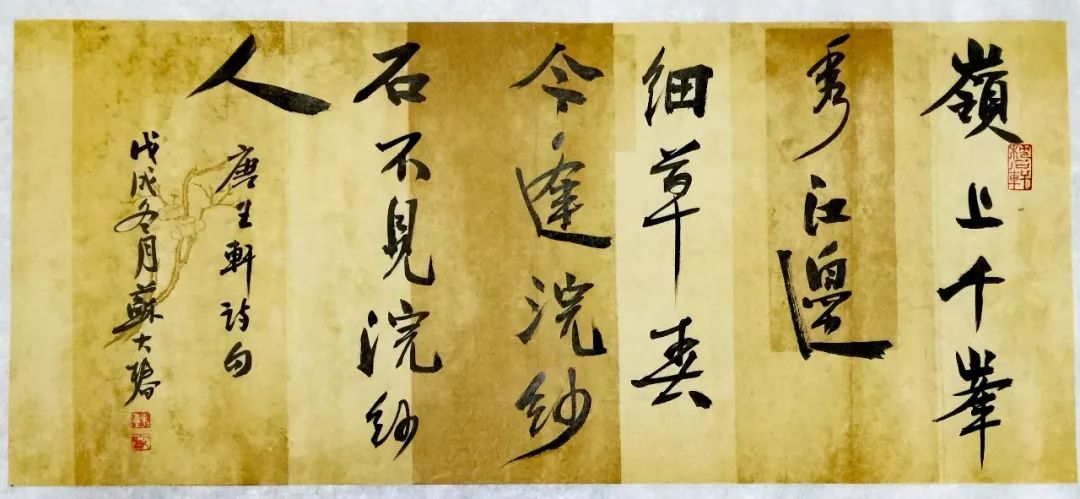 嶺上千峯
秀江邊
細草春
今逢浣紗
石不見浣紗
人
唐王軒詩句
戊戌冬月蘇大